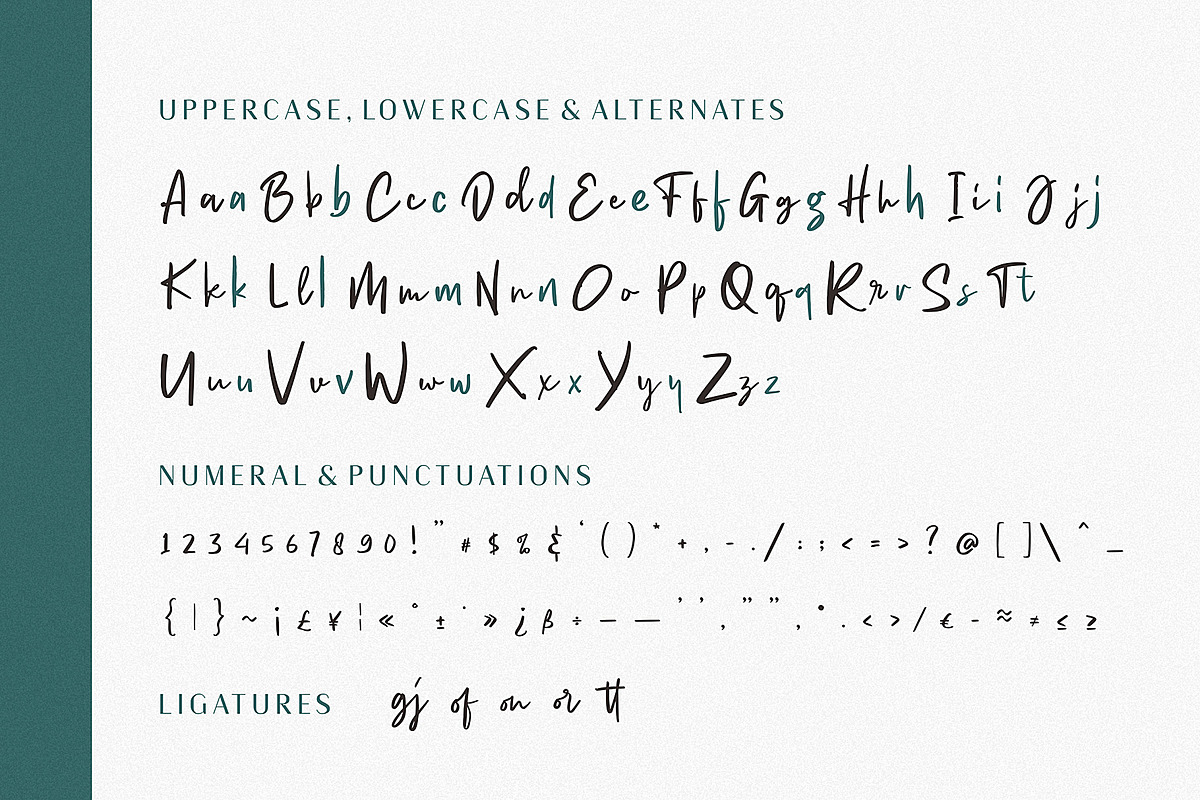 UPPERCASE, LOWERCASE & ALTERNATES
Aaa Bbb Ccc Ddd Eee Fff Ggg Hhh Iii Jjj
Kkk Lll Mmm Nnn Oo Pp Qqq Rrr Ss Tt
Uuu Vvv Www Xxx Yyy Zzz
NUMERAL & PUNCTUATIONS
1 2 3 4 5 6 7 8 9 0 ! " # $ % & ' ( ) * + , - . / : ; < = > ? @ [ ] \ ^ _
{ | } ~ ¡ £ ¥ ¦ « ° ± · » ¿ ß ÷ – — ‘ ’ ‚ “ ” „ • . ‹ › ⁄ € - ≈ ≠ ≤ ≥
LIGATURES gj of on or tt